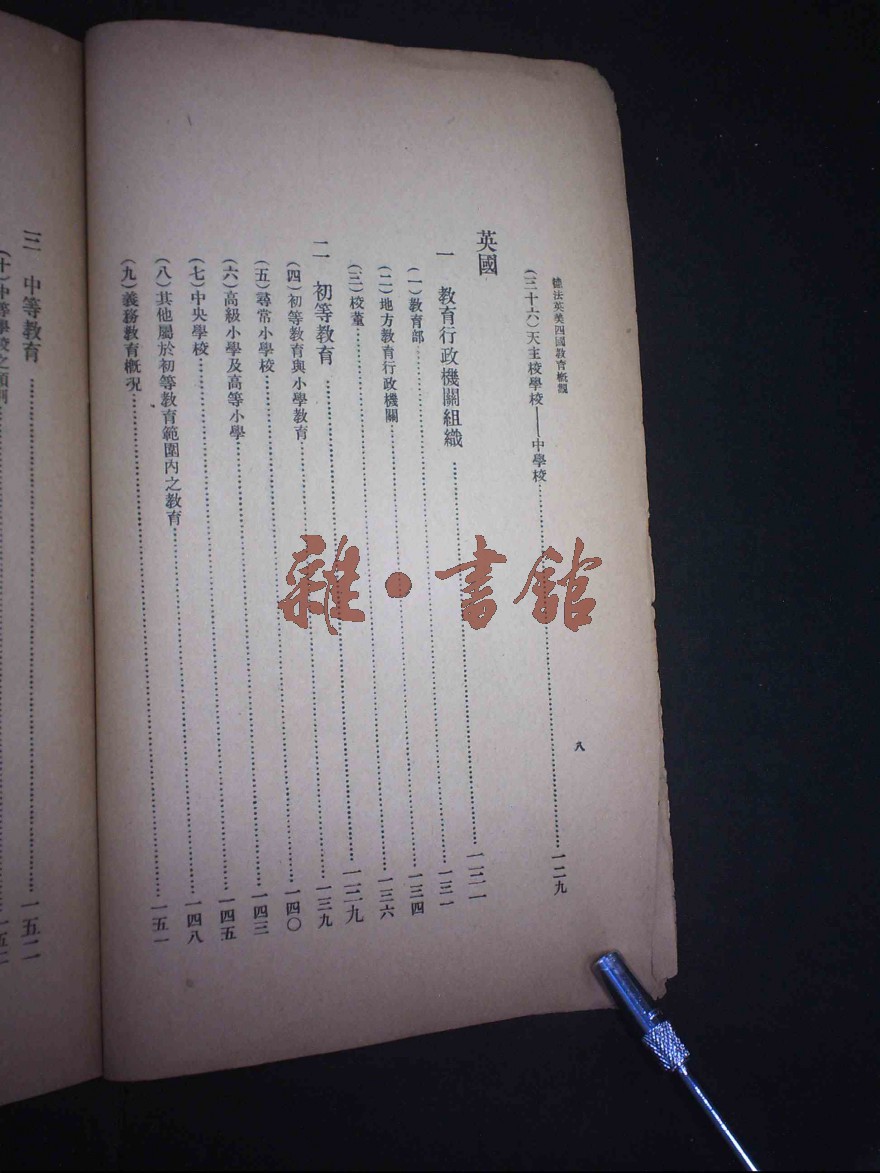 德法英美四國教育概觀 八
(三十六)天主校學校——中學校……一二九
英國
一 教育行政機關組織……一三一
(一)教育部……一三一
(二)地方教育行政機關……一三四
(三)校董……一三六
二 初等教育……一三九
(四)初等教育與小學教育……一三九
(五)尋常小學校……一四〇
(六)高級小學及高等小學……一四三
(七)中央學校……一四五
(八)其他屬於初等教育範圍內之教育……一四八
(九)義務教育概況……一五一
三 中等教育……一五二
(十)中等學校之類別……一五二
雜·書館